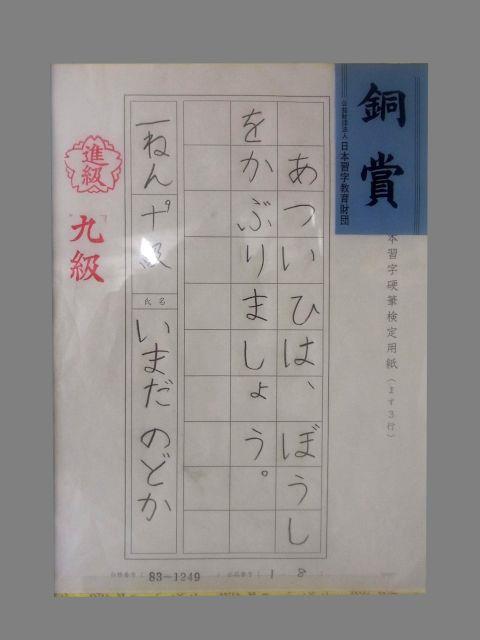 銅賞
公益財団法人 日本習字教育財団
本習字硬筆検定用紙(ます3行)
あつい ひは、ぼうし
をかぶりましょう。
一ねん 十級
氏名
いまだ のどか
進級
九級
83-1249
1 8